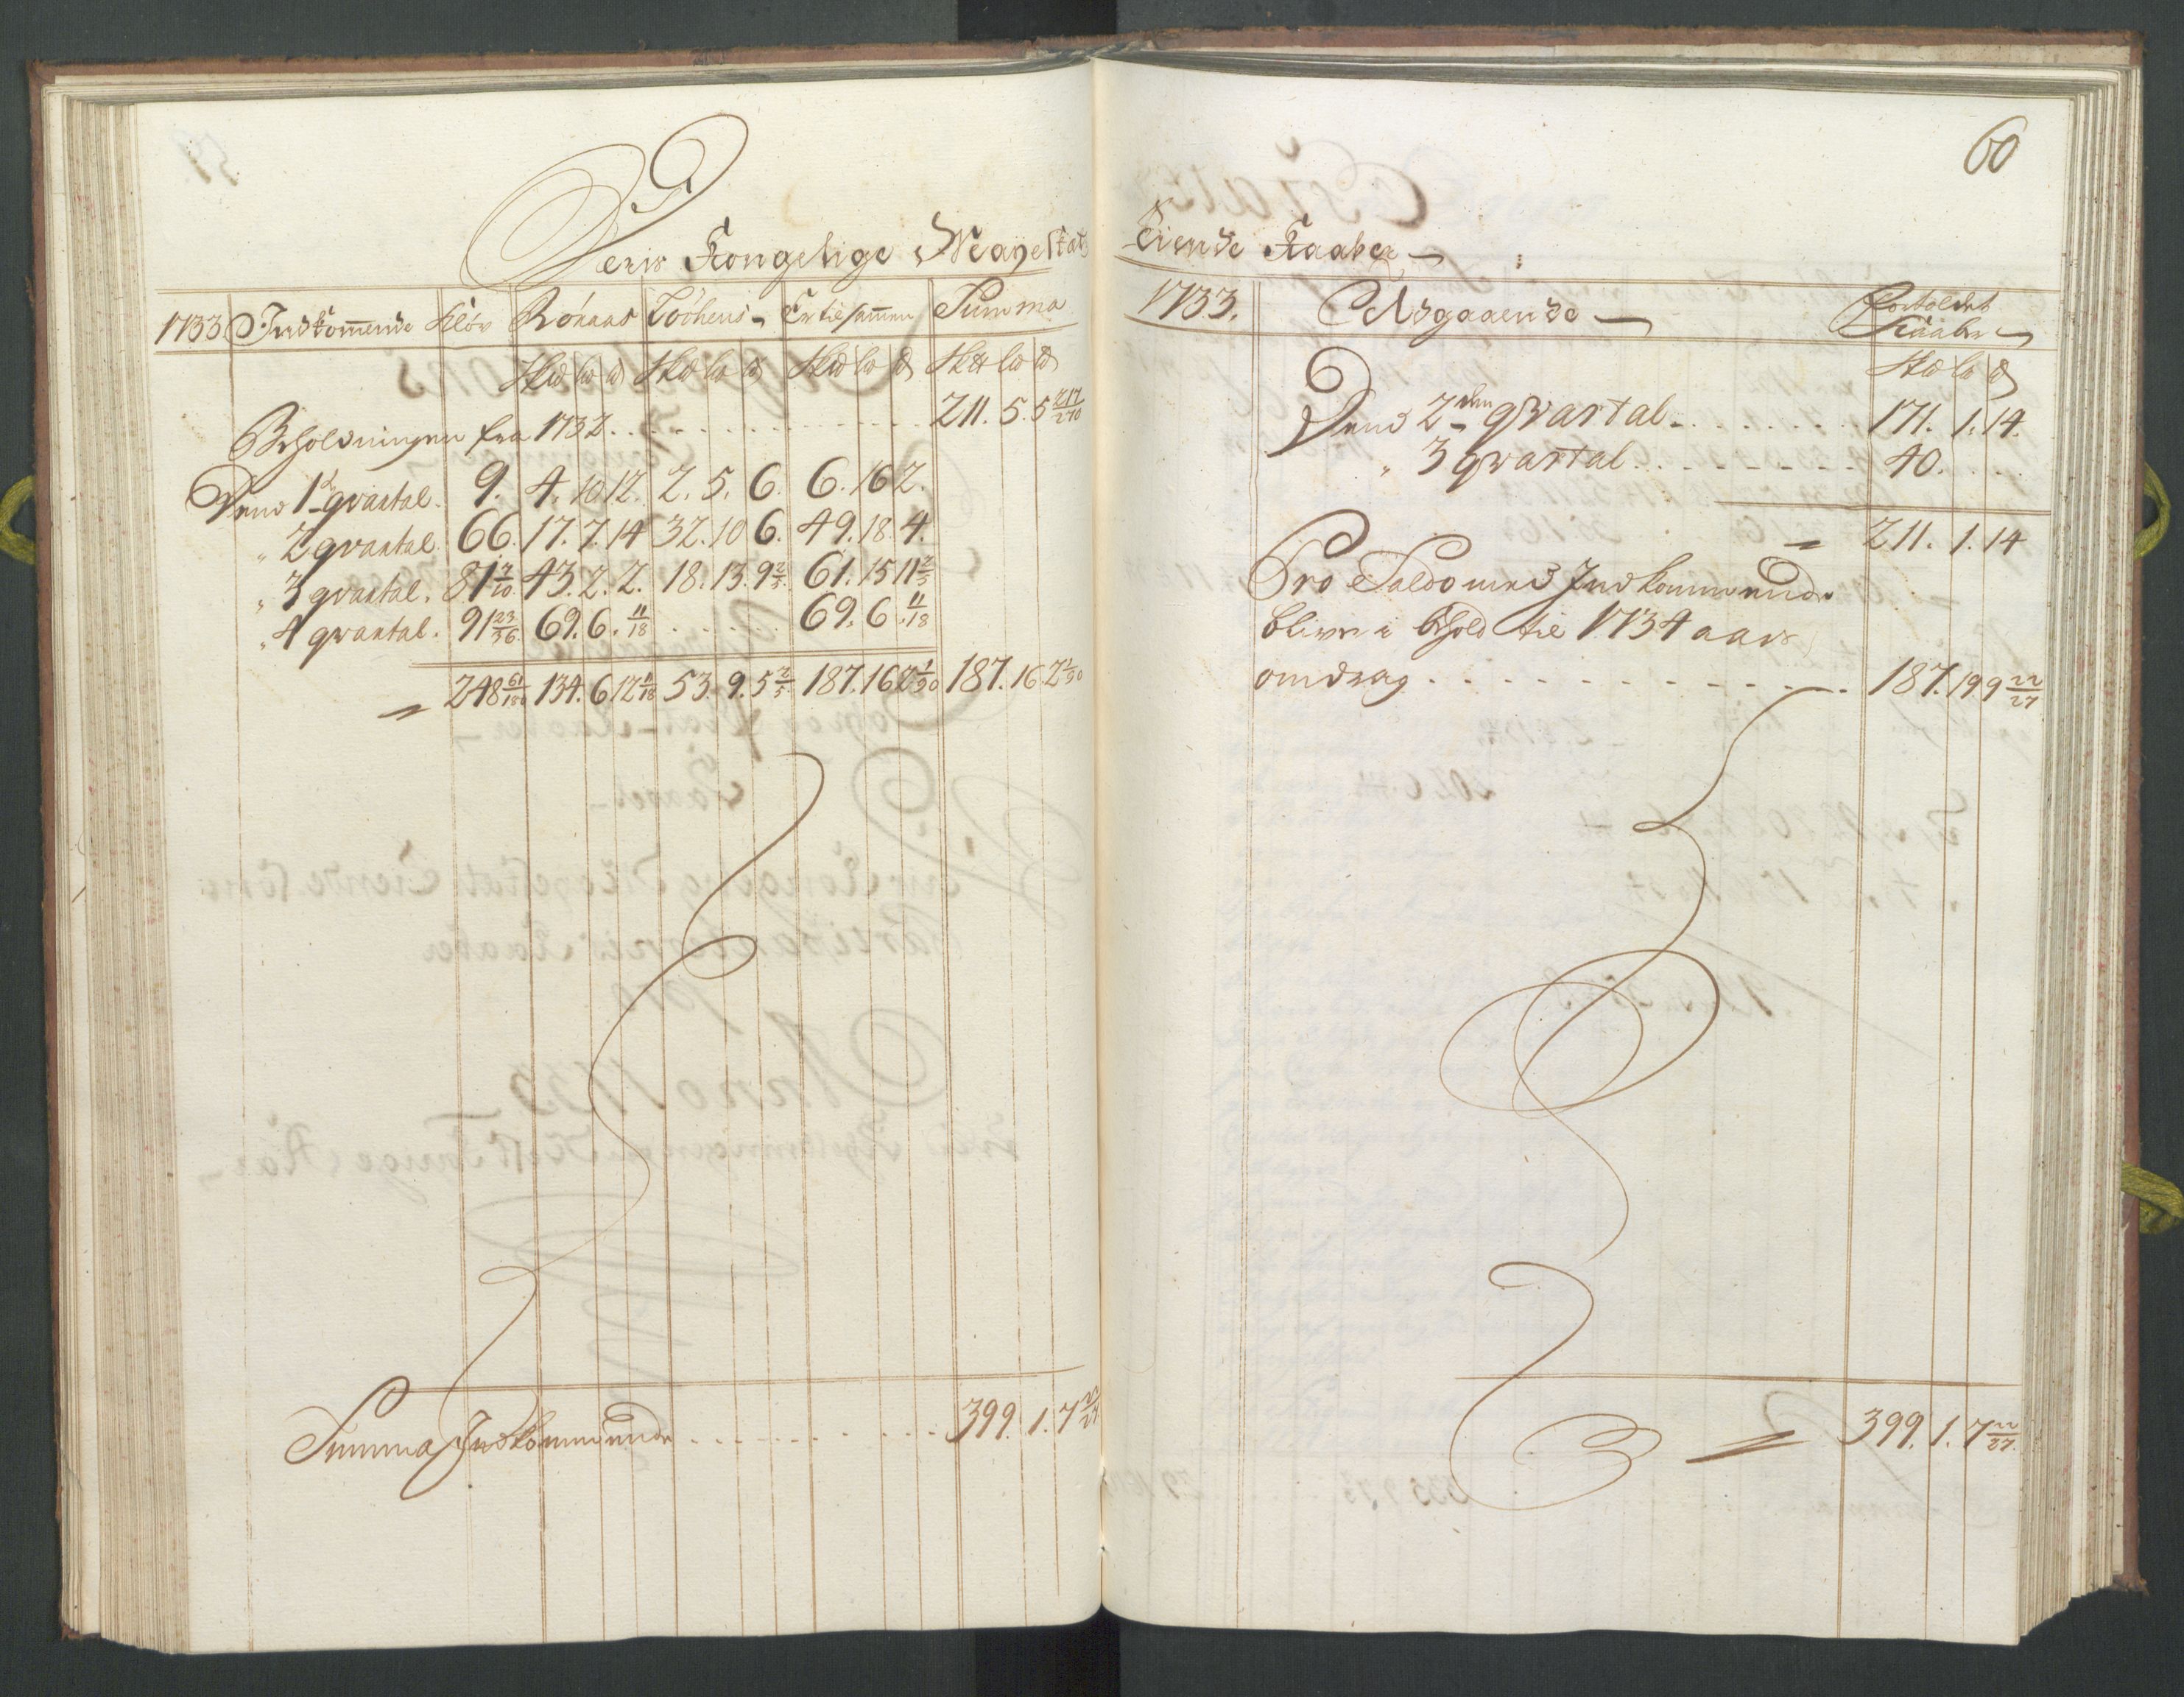 60
Deris Kongelige Mayestats
Tiende Kaaber
1733 Indkommende Kløv Röraas Töóhens Er tilsammen Summa
Sk℔ l℔ ℔ Sk℔ l℔ ℔ Sk℔ l℔ ℔ Sk℔ l℔ ℔
Beholdningen fra 1732 . . . . . . 211. 5. 5 217/270
Dend 1 qvartal. 9. 4. 10 12. 2. 5. 6. 6. 16 2.
" 2 qvartal. 66. 17. 7. 14 32. 10 6. 49. 18. 4.
" 3 qvartal. 81 7/20 43. 2. 2. 18. 13. 9 2/5 61. 15 11 2/5
" 4 qvartal. 91 23/36 69. 6. 11/18 . . . . 69. 6. 11/18
248 61/180 134. 6 12 11/18 53. 9. 5 2/5 187. 16 2 1/90 187. 16. 2 1/90
Summa Indkommende . . . . . . 399. 1. 7 22/27
1733. Udgaaende Fortoldet
Kaaber
Sk℔ l℔ ℔
Dend 2den qvartal . . . . . . 171. 1. 14.
" 3 qvartal . . . . . . 40. . . .
211. 1. 14
Pro Saldo med Indkommende
bliver i behold til 1734 aars
omdrag . . . . . . 187. 19 9 22/27
399. 1. 7 22/27